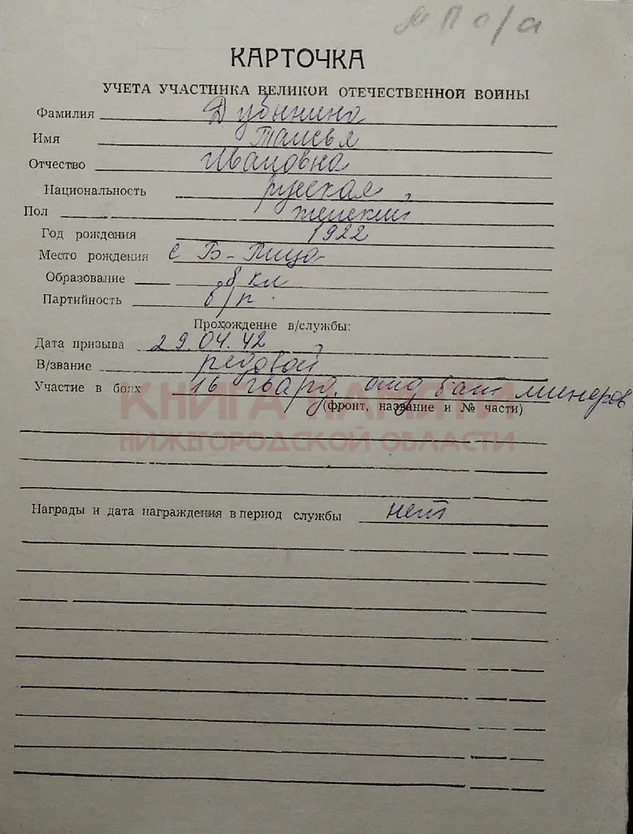 КАРТОЧКА
УЧЕТА УЧАСТНИКА ВЕЛИКОЙ ОТЕЧЕСТВЕННОЙ ВОЙНЫ
Фамилия Дубинина
Имя Таисья
Отчество Ивановна
Национальность русская
Пол женский
Год рождения 1922
Место рождения с Б-Пица
Образование 8 кл
Партийность б/п.
Прохождение в/службы:
Дата призыва 29.04.42
В/звание рядовой
Участие в боях 16 гвард. отд бат минеров
(фронт, название и № части)
КНИГА ПАМЯТИ
НИЖЕГОРОДСКОЙ ОБЛАСТИ
Награды и дата награждения в период службы нет